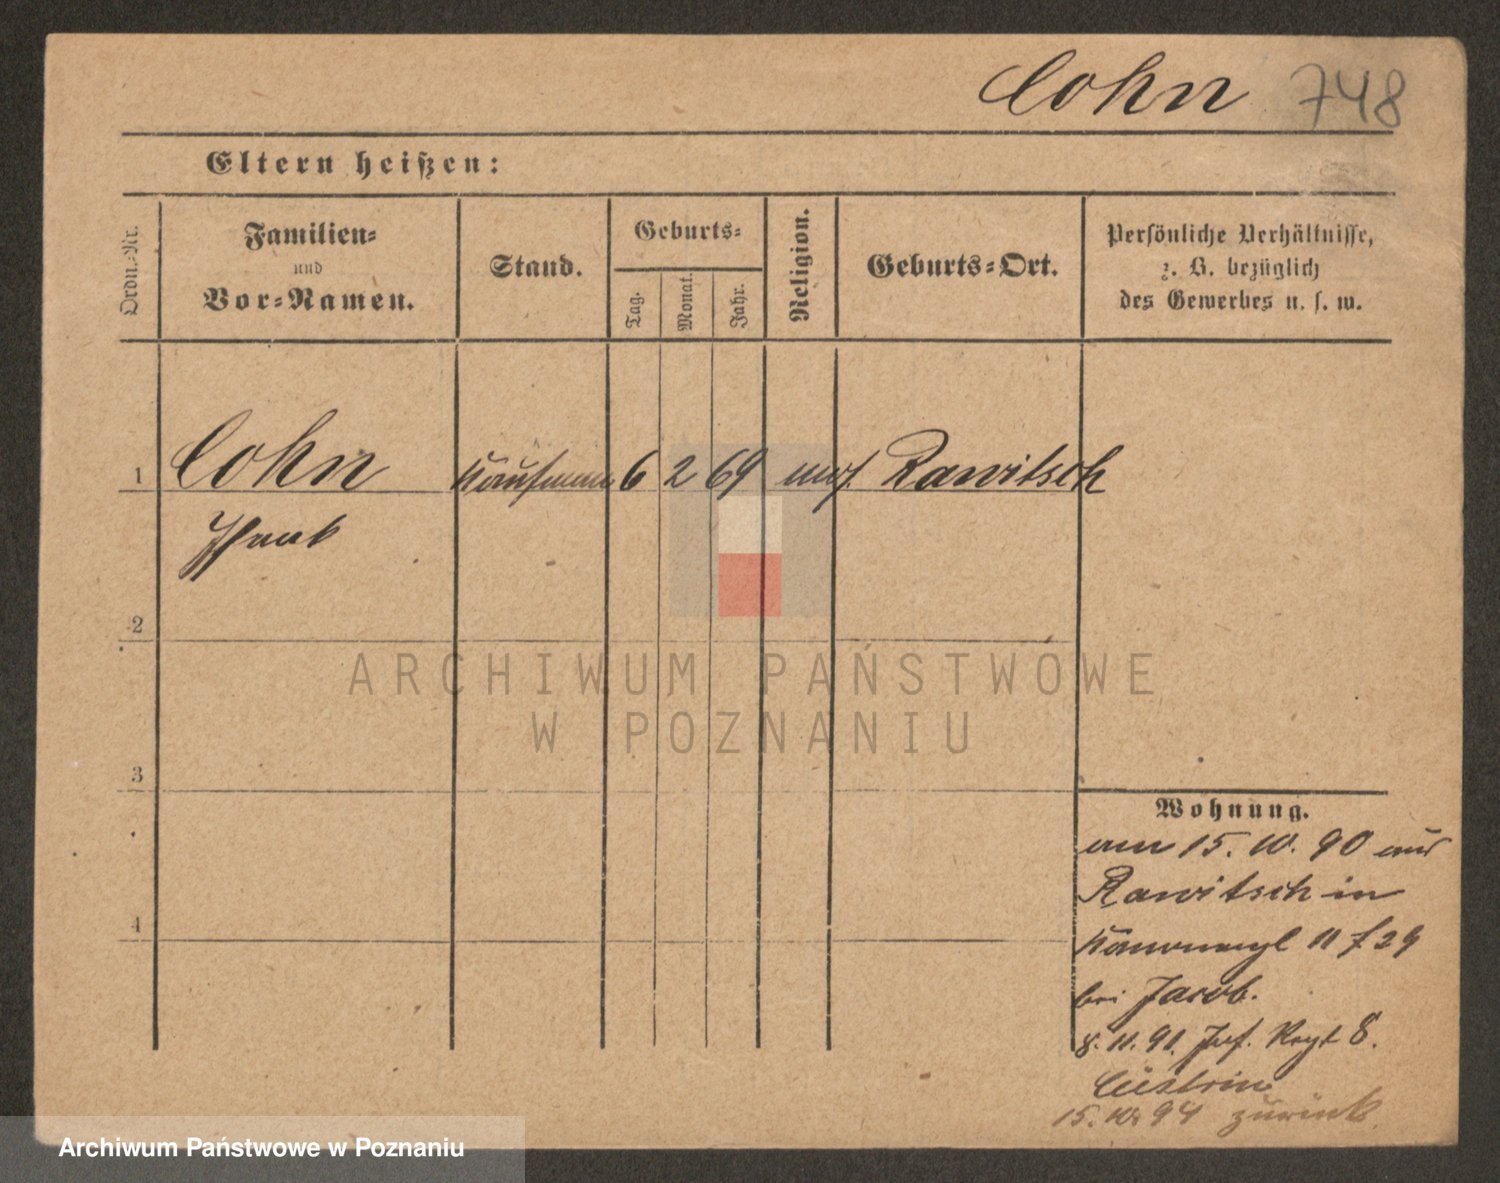 Cohn 748
Eltern heißen:
Ordn.-Nr.
Familien-
und
Vor-Namen.
Stand.
Geburts-
Tag.
Monat.
Jahr.
Religion.
Geburts-Ort.
Persönliche Verhältnisse,
z. B. bezüglich
des Gewerbes u. s. w.
1 Cohn Kaufmann 6 2 69 mos. Rawitsch
2
3
4
Wohnung.
am 15. 10. 90 aus
Rawitsch in
11 29
bei Jacob.
8. 11. 91. Inf. Regt 8.
Cüstrin
15. 10. 94 zurück
ARCHIWUM PAŃSTWOWE
W POZNANIU
Archiwum Państwowe w Poznaniu